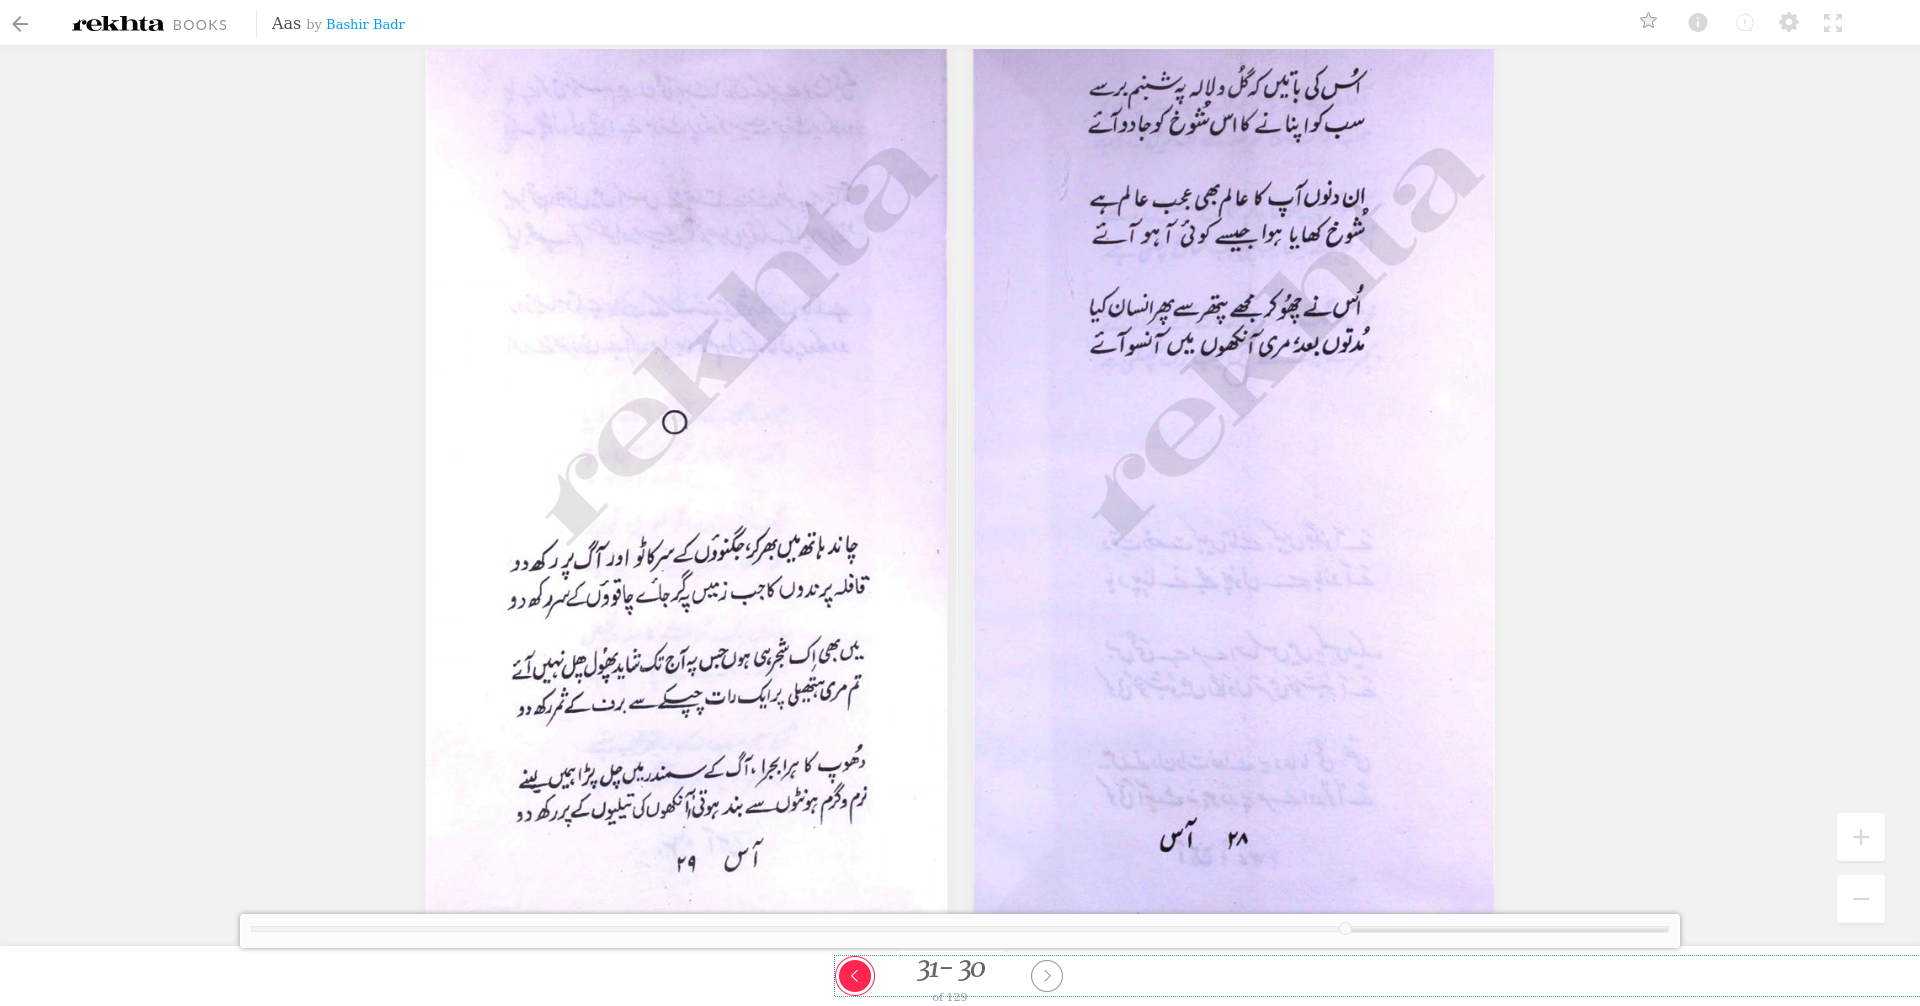 rekhta BOOKS
Aas by Bashir Badr
اُس کی باتیں کہ گُل و لالہ پہ شبنم برسے
سب کو اپنانے کا اس شُوخ کو جادو آئے
ان دنوں آپ کا عالم بھی عجب عالم ہے
شُوخ کھایا ہوا جیسے کوئی آہو آئے
اُس نے چھُو کر مجھے پتھر سے پھر انسان کیا
مُدتوں بعد، مری آنکھوں میں آنسو آئے
۲۸ آس
rekhta
چاند ہاتھ میں بھر کر، جگنوؤں کے سر کاٹو اور آگ پر رکھ دو
قافلہ پرندوں کا جب زمیں پہ گر جائے چاقوؤں کے سر رکھ دو
میں بھی اِک شجر ہی ہوں جس پہ آج تک شاید پھُول پھل نہیں آئے
تم مری ہتھیلی پر ایک رات چپکے سے برف کے ثمر رکھ دو
دھُوپ کا ہرا بجرا، آگ کے سمندر میں چل پڑا ہمیں لینے
نرم و گرم ہونٹوں سے بند ہوتی آنکھوں کی تیلیوں کے پر رکھ دو
آس ۲۹
rekhta
31- 30
of 129